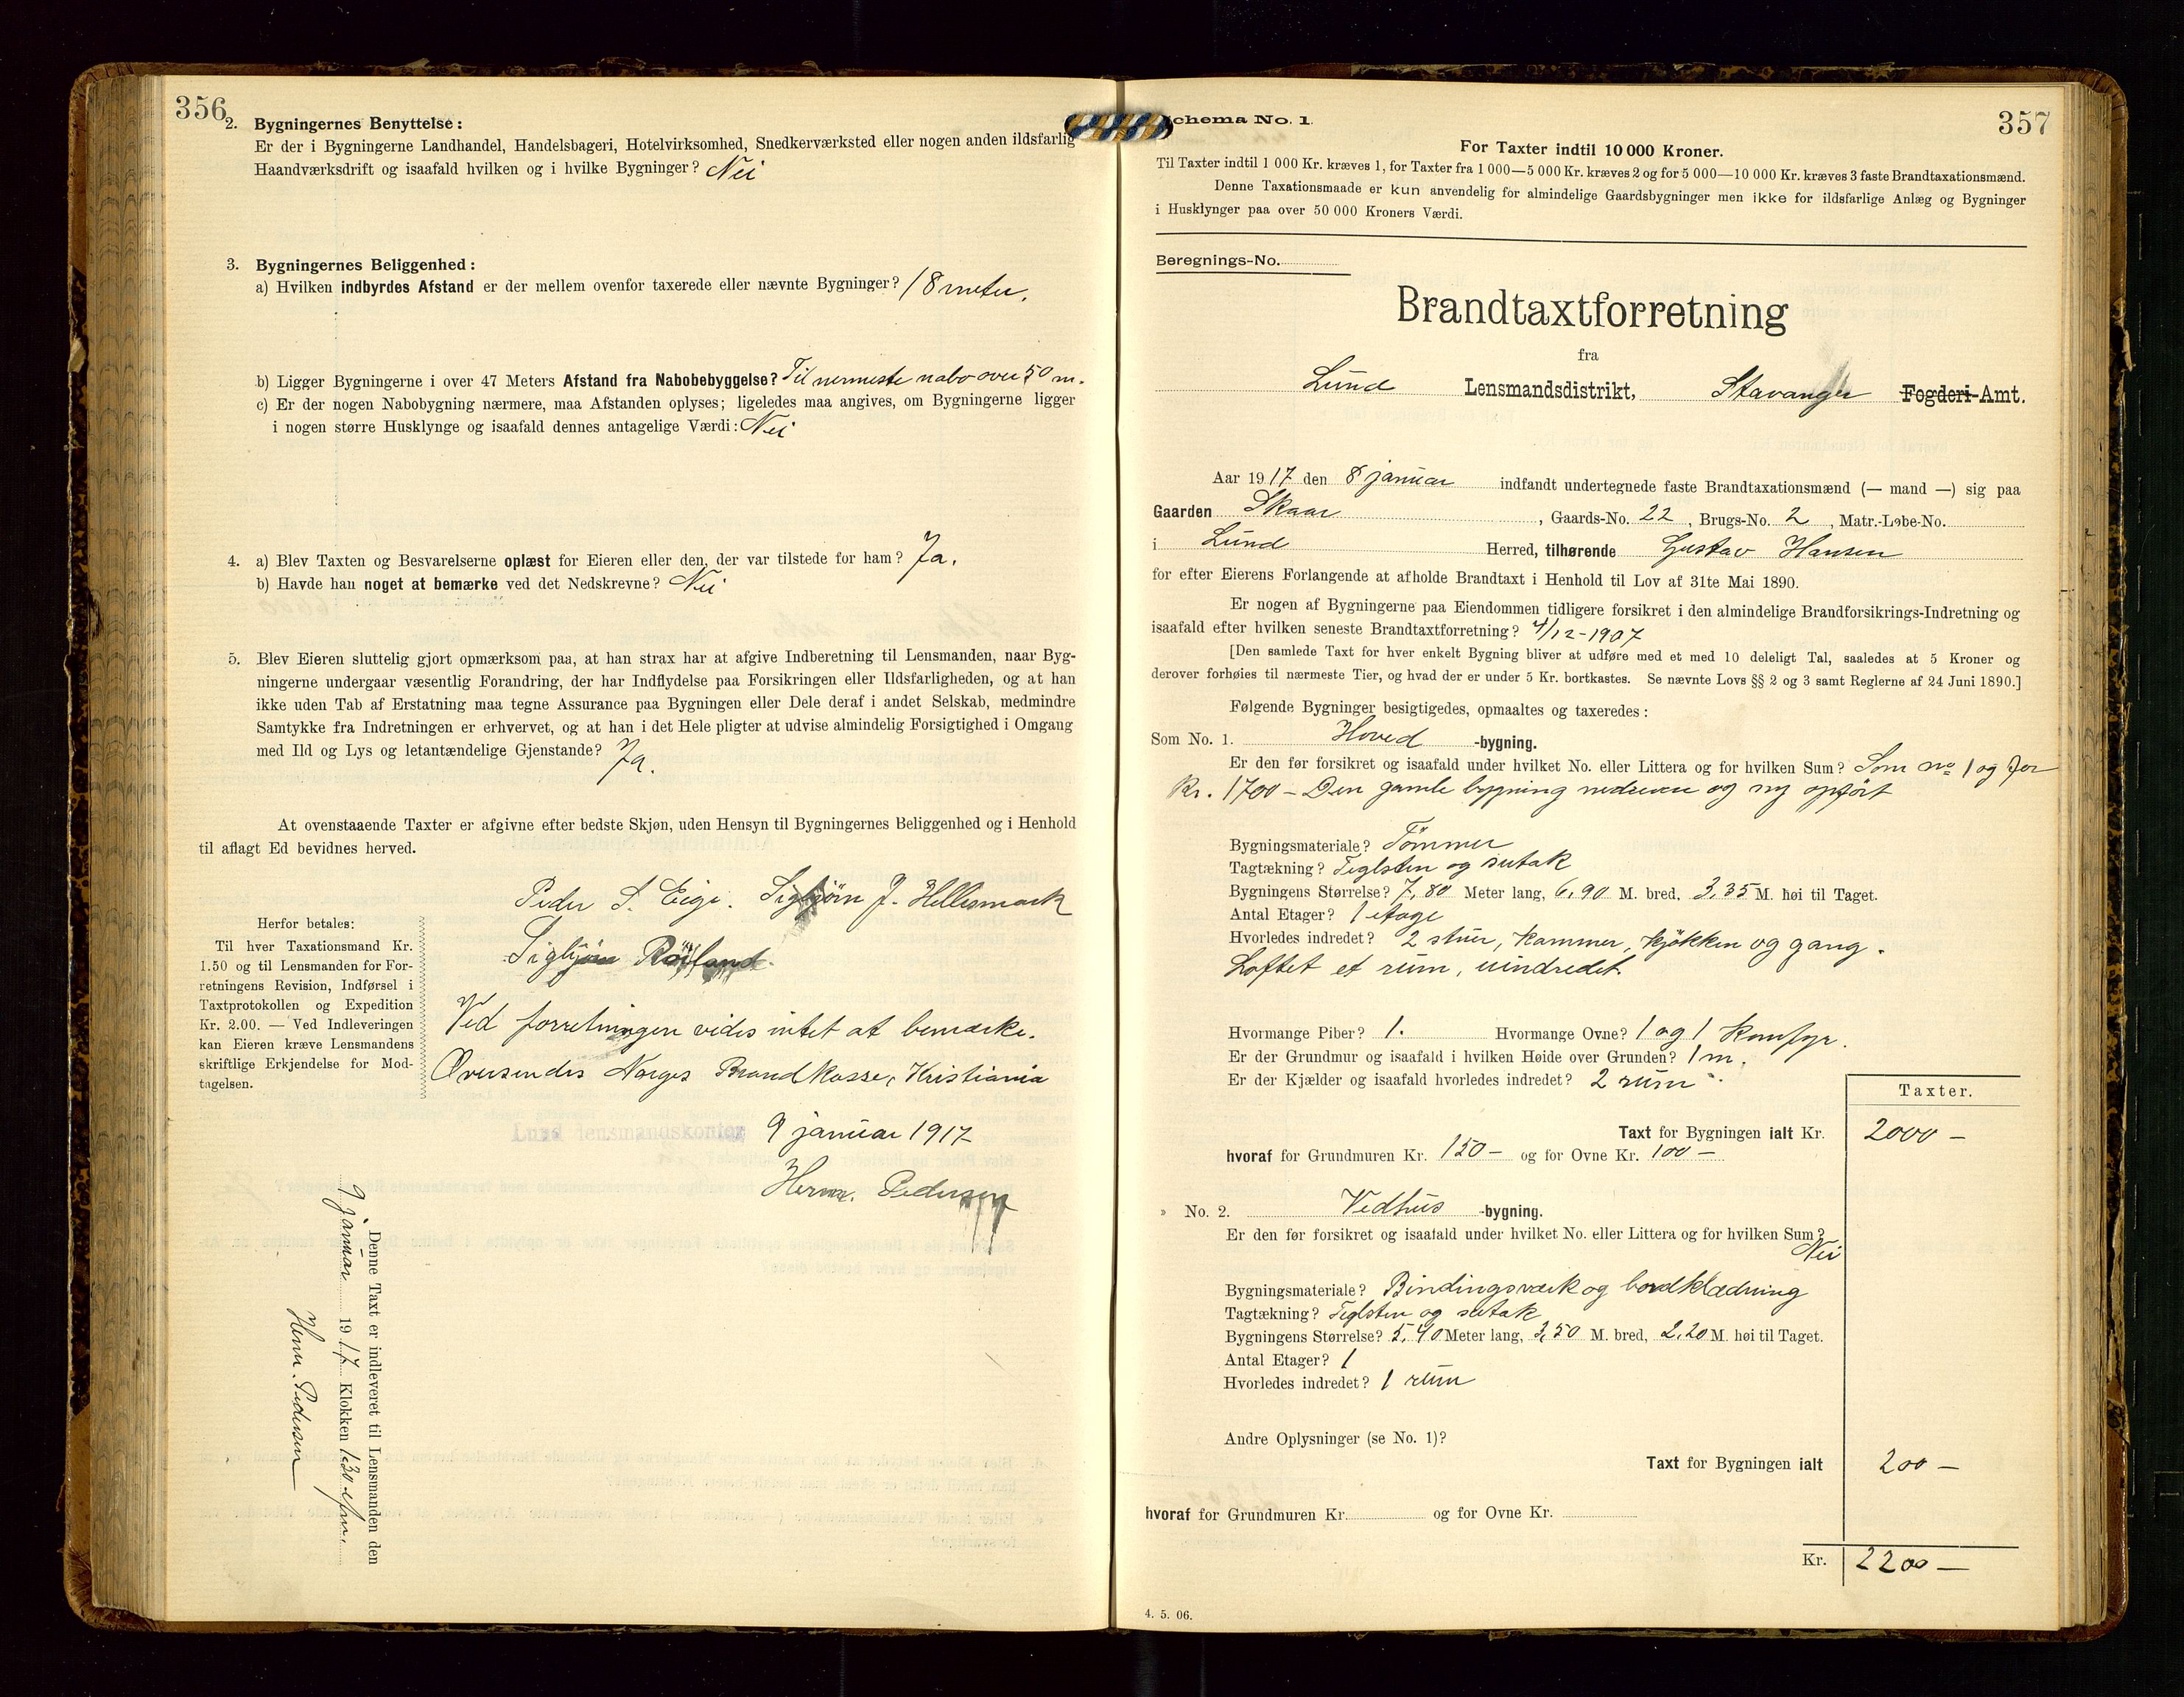 356
2. Bygningernes Benyttelse:
Er der i Bygningerne Landhandel, Handelsbageri, Hotelvirksomhed, Snedkerværksted eller nogen anden ildsfarlig
Haandværksdrift og isaafald hvilken og i hvilke Bygninger? Nei
3. Bygningernes Beliggenhed:
a) Hvilken indbyrdes Afstand er der mellem ovenfor taxerede eller nævnte Bygninger? 18 meter.
b) Ligger Bygningerne i over 47 Meters Afstand fra Nabobebyggelse? Til nermeste nabo over 50 m.
c) Er der nogen Nabobygning nærmere, maa Afstanden oplyses; ligeledes maa angives, om Bygningerne ligger
i nogen større Husklynge og isaafald dennes antagelige Værdi: Nei
4. a) Blev Taxten og Besvarelserne oplæst for Eieren eller den, der var tilstede for ham? Ja.
b) Havde han noget at bemærke ved det Nedskrevne? Nei
5. Blev Eieren sluttelig gjort opmærksom paa, at han strax har at afgive Indberetning til Lensmanden, naar Byg-
ningerne undergaar væsentlig Forandring, der har Indflydelse paa Forsikringen eller Ildsfarligheden, og at han
ikke uden Tab af Erstatning maa tegne Assurance paa Bygningen eller Dele deraf i andet Selskab, medmindre
Samtykke fra Indretningen er erhvervet, og at han i det Hele pligter at udvise almindelig Forsigtighed i Omgang
med Ild og Lys og letantændelige Gjenstande? Ja.
At ovenstaaende Taxter er afgivne efter bedste Skjøn, uden Hensyn til Bygningernes Beliggenhed og i Henhold
til aflagt Ed bevidnes herved.
Peder S. Eige. Sigbjörn J. Hellesmark
Sigbjörn Röiland.
Herfor betales:
Til hver Taxationsmand Kr.
1.50 og til Lensmanden for For-
retningens Revision, Indførsel i
Taxtprotokollen og Expedition
Kr. 2.00. — Ved Indleveringen
kan Eieren kræve Lensmandens
skriftlige Erkjendelse for Mod-
tagelsen.
Ved forretningen vides intet at bemærke.
Oversendes Norges Brandkasse, Kristiania
Lund lensmandskontor 9 januar 1917
Herm. Pedersen
Denne Taxt er indleveret til Lensmanden den
9 januar 1917 Klokken 1.30 efm.
Herm. Pedersen
357
Schema No. 1.
For Taxter indtil 10 000 Kroner.
Til Taxter indtil 1 000 Kr. kræves 1, for Taxter fra 1 000—5 000 Kr. kræves 2 og for 5 000—10 000 Kr. kræves 3 faste Brandtaxationsmænd.
Denne Taxationsmaade er kun anvendelig for almindelige Gaardsbygninger men ikke for ildsfarlige Anlæg og Bygninger
i Husklynger paa over 50 000 Kroners Værdi.
Beregnings-No.
Brandtaxtforretning
fra
Lund Lensmandsdistrikt, Stavanger Fogderi-Amt.
Aar 1917 den 8 januar indfandt undertegnede faste Brandtaxationsmænd (— mand —) sig paa
Gaarden Skaar, Gaards-No. 22, Brugs-No. 2, Matr.-Løbe-No.
i Lund Herred, tilhørende Gustav Hansen
for efter Eierens Forlangende at afholde Brandtaxt i Henhold til Lov af 31te Mai 1890.
Er nogen af Bygningerne paa Eiendommen tidligere forsikret i den almindelige Brandforsikrings-Indretning og
isaafald efter hvilken seneste Brandtaxtforretning? 4/12-1907
[Den samlede Taxt for hver enkelt Bygning bliver at udføre med et med 10 deleligt Tal, saaledes at 5 Kroner og
derover forhøies til nærmeste Tier, og hvad der er under 5 Kr. bortkastes. Se nævnte Lovs §§ 2 og 3 samt Reglerne af 24 Juni 1890.]
Følgende Bygninger besigtigedes, opmaaltes og taxeredes:
Som No. 1. Hoved -bygning.
Er den før forsikret og isaafald under hvilket No. eller Littera og for hvilken Sum? Som no 1 og for
Kr. 1700 - Den gamle bygning nedreven og ny opfört
Bygningsmateriale? Tömmer
Tagtækning? Teglsten og sutak
Bygningens Størrelse? 7,80 Meter lang, 6,90 M. bred, 3,35 M. høi til Taget.
Antal Etager? 1 etage
Hvorledes indredet? 2 stuer, kammer, kjökken og gang.
Loftet et rum, uindredet.
Hvormange Piber? 1. Hvormange Ovne? 1 og 1 komfyr.
Er der Grundmur og isaafald i hvilken Høide over Grunden? 1 m.
Er der Kjælder og isaafald hvorledes indredet? 2 rum
Taxter.
Taxt for Bygningen ialt Kr. 2000 —
hvoraf for Grundmuren Kr. 150 — og for Ovne Kr. 100 —
» No. 2. Vedhus -bygning.
Er den før forsikret og isaafald under hvilket No. eller Littera og for hvilken Sum?
Nei
Bygningsmateriale? Bindingsværk og bordklædning
Tagtækning? Teglsten og sutak
Bygningens Størrelse? 5,40 Meter lang, 3,50 M. bred, 2,20 M. høi til Taget.
Antal Etager? 1
Hvorledes indredet? 1 rum
Andre Oplysninger (se No. 1)?
Taxt for Bygningen ialt 200 —
hvoraf for Grundmuren Kr. og for Ovne Kr.
Kr. 2200 —
4. 5. 06.